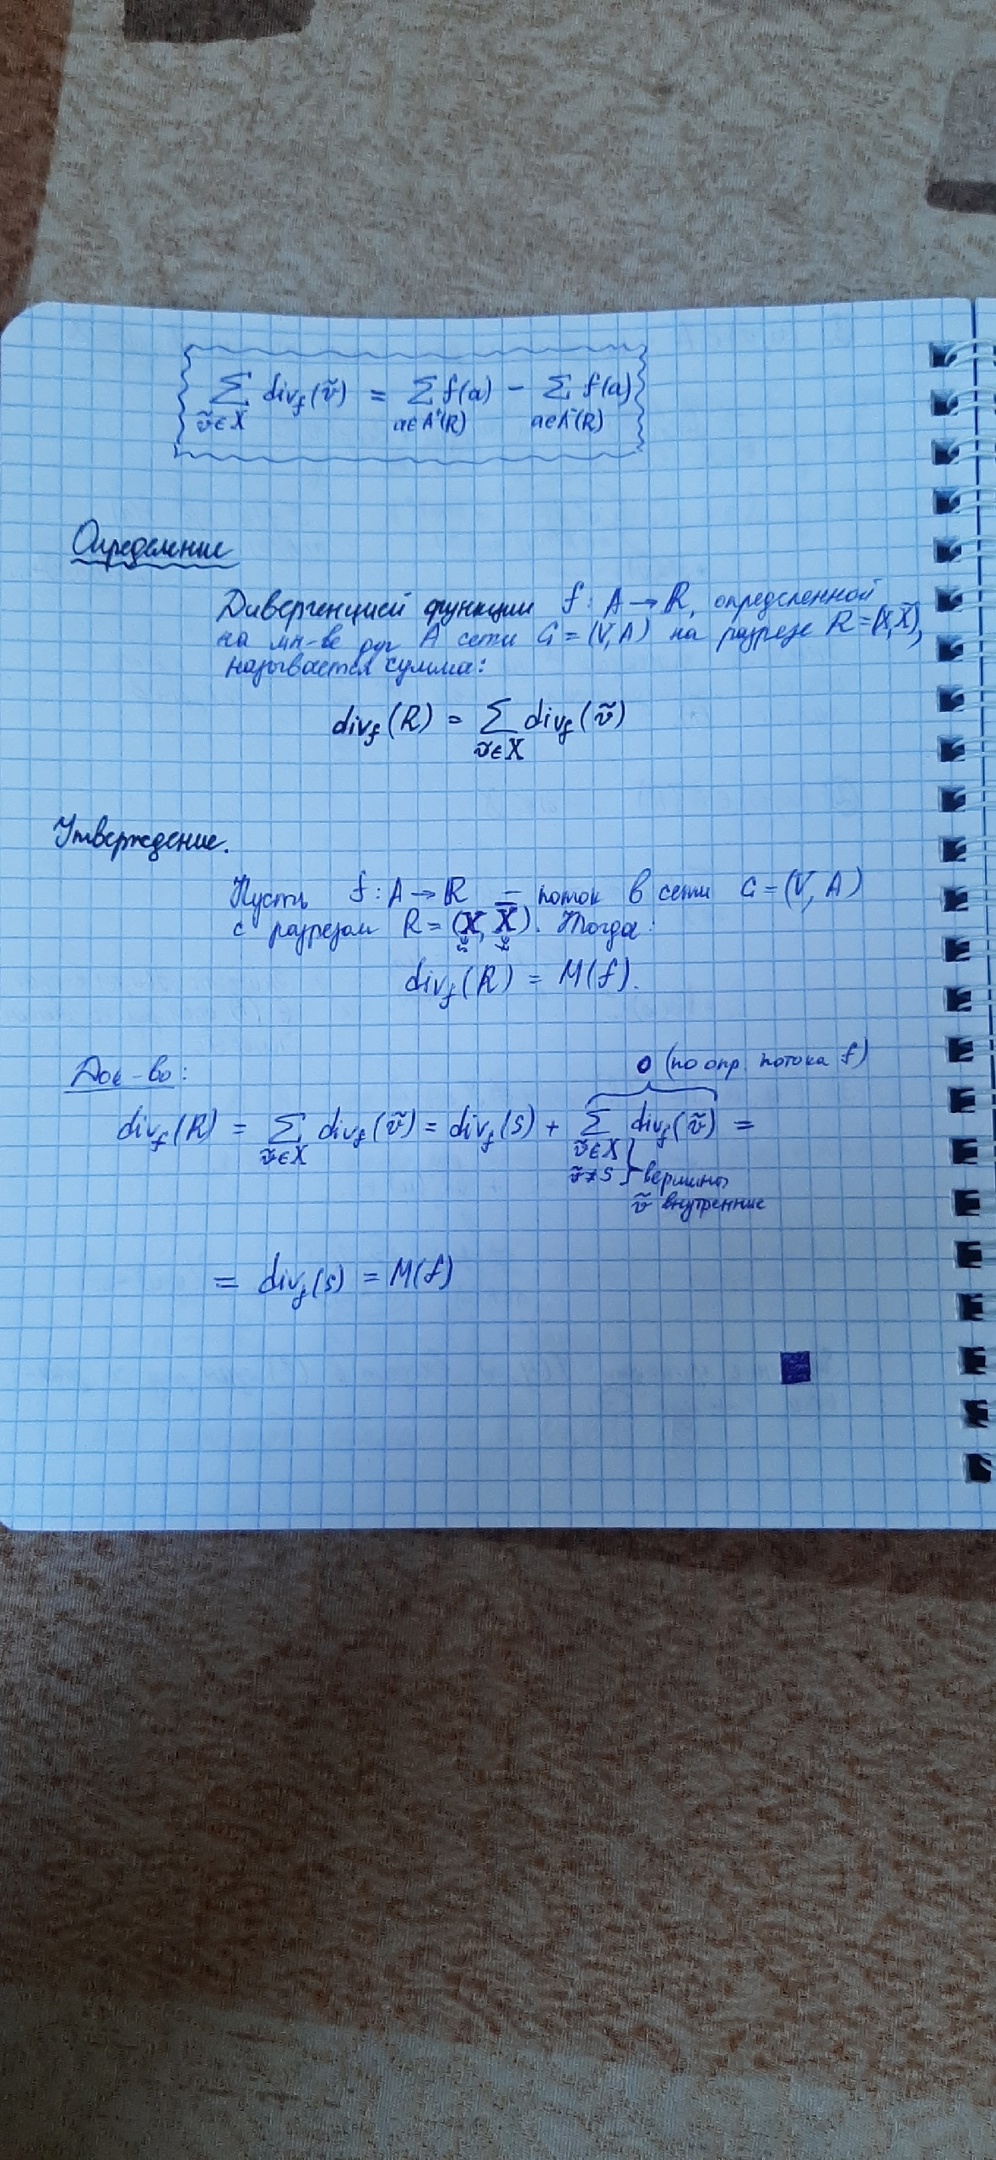 ∑ div_f(ṽ) = ∑ f(a) − ∑ f(a)
ṽ∈X a∈A⁺(R) a∈A⁻(R)
Определение
Дивергенцией функции f : A → R, определенной
на мн-ве дуг A сети G = (V, A) на разрезе R = (X, X̄),
называется сумма:
div_f(R) = ∑ div_f(ṽ)
ṽ∈X
Утверждение.
Пусть f : A → R – поток в сети G = (V, A)
с разрезом R = (X, X̄). Тогда:
div_f(R) = M(f).
Док-во:
0 (по опр. потока f)
div_f(R) = ∑ div_f(ṽ) = div_f(s) + ∑ div_f(ṽ) =
ṽ∈X ṽ∈X
ṽ≠s } вершины
ṽ внутренние
= div_f(s) = M(f)